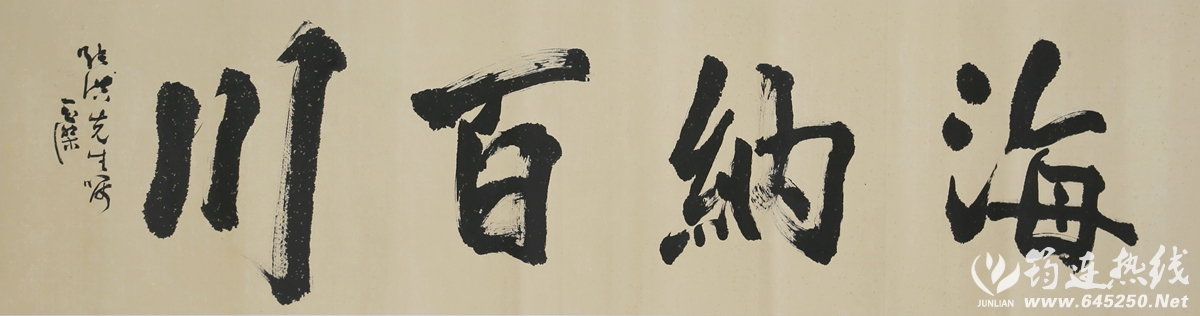 海納百川
先生
筠连热线
JUNLIAN
www.645250.Net